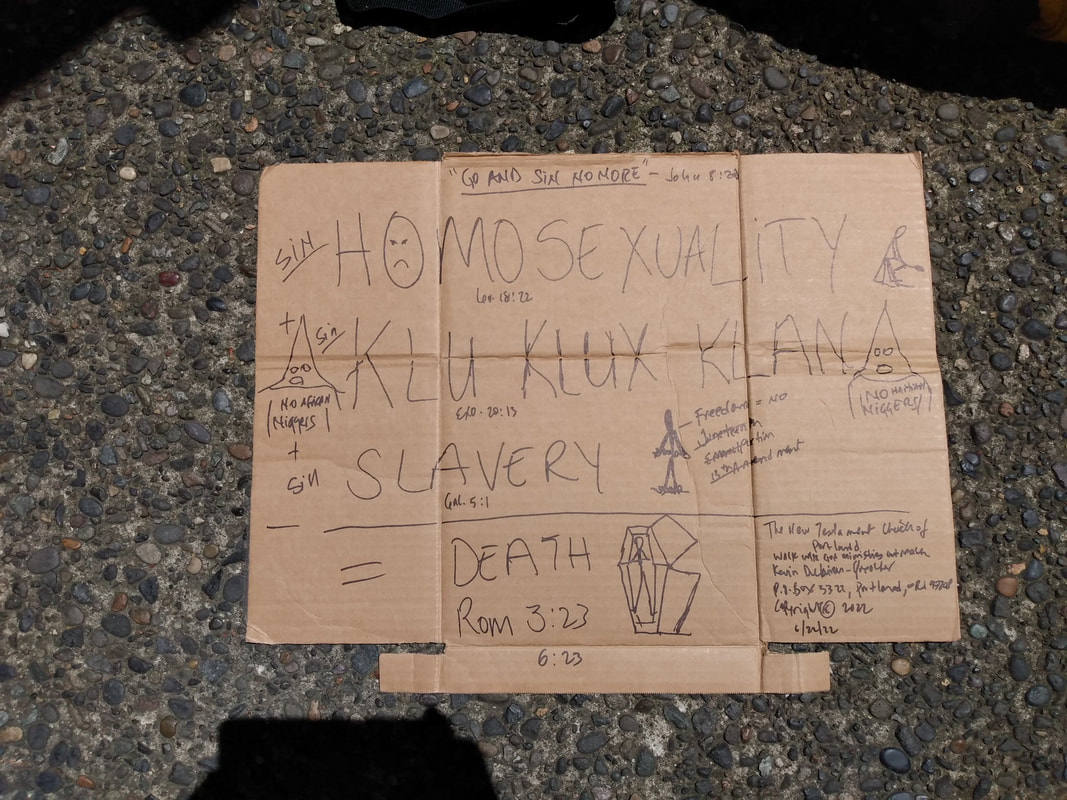 "GO AND SIN NO MORE" - John 8:
SIN HOMOSEXUALITY
Lev. 18:22
+ Sin KLU KLUX KLAN
NO AFRICAN
NIGGERS
NO
NIGGERS
EXO. 20:13
+
SIN
SLAVERY
Gal. 5:1
Freedom = NO
Juneteenth
Emancipation
13th Amendment
= DEATH
Rom 3:23
6:23
The New Testament Church of
Portland
Walk with God ministries
Kevin
P.O. Box 5322, Portland,
Copyright © 2022
6/22/22